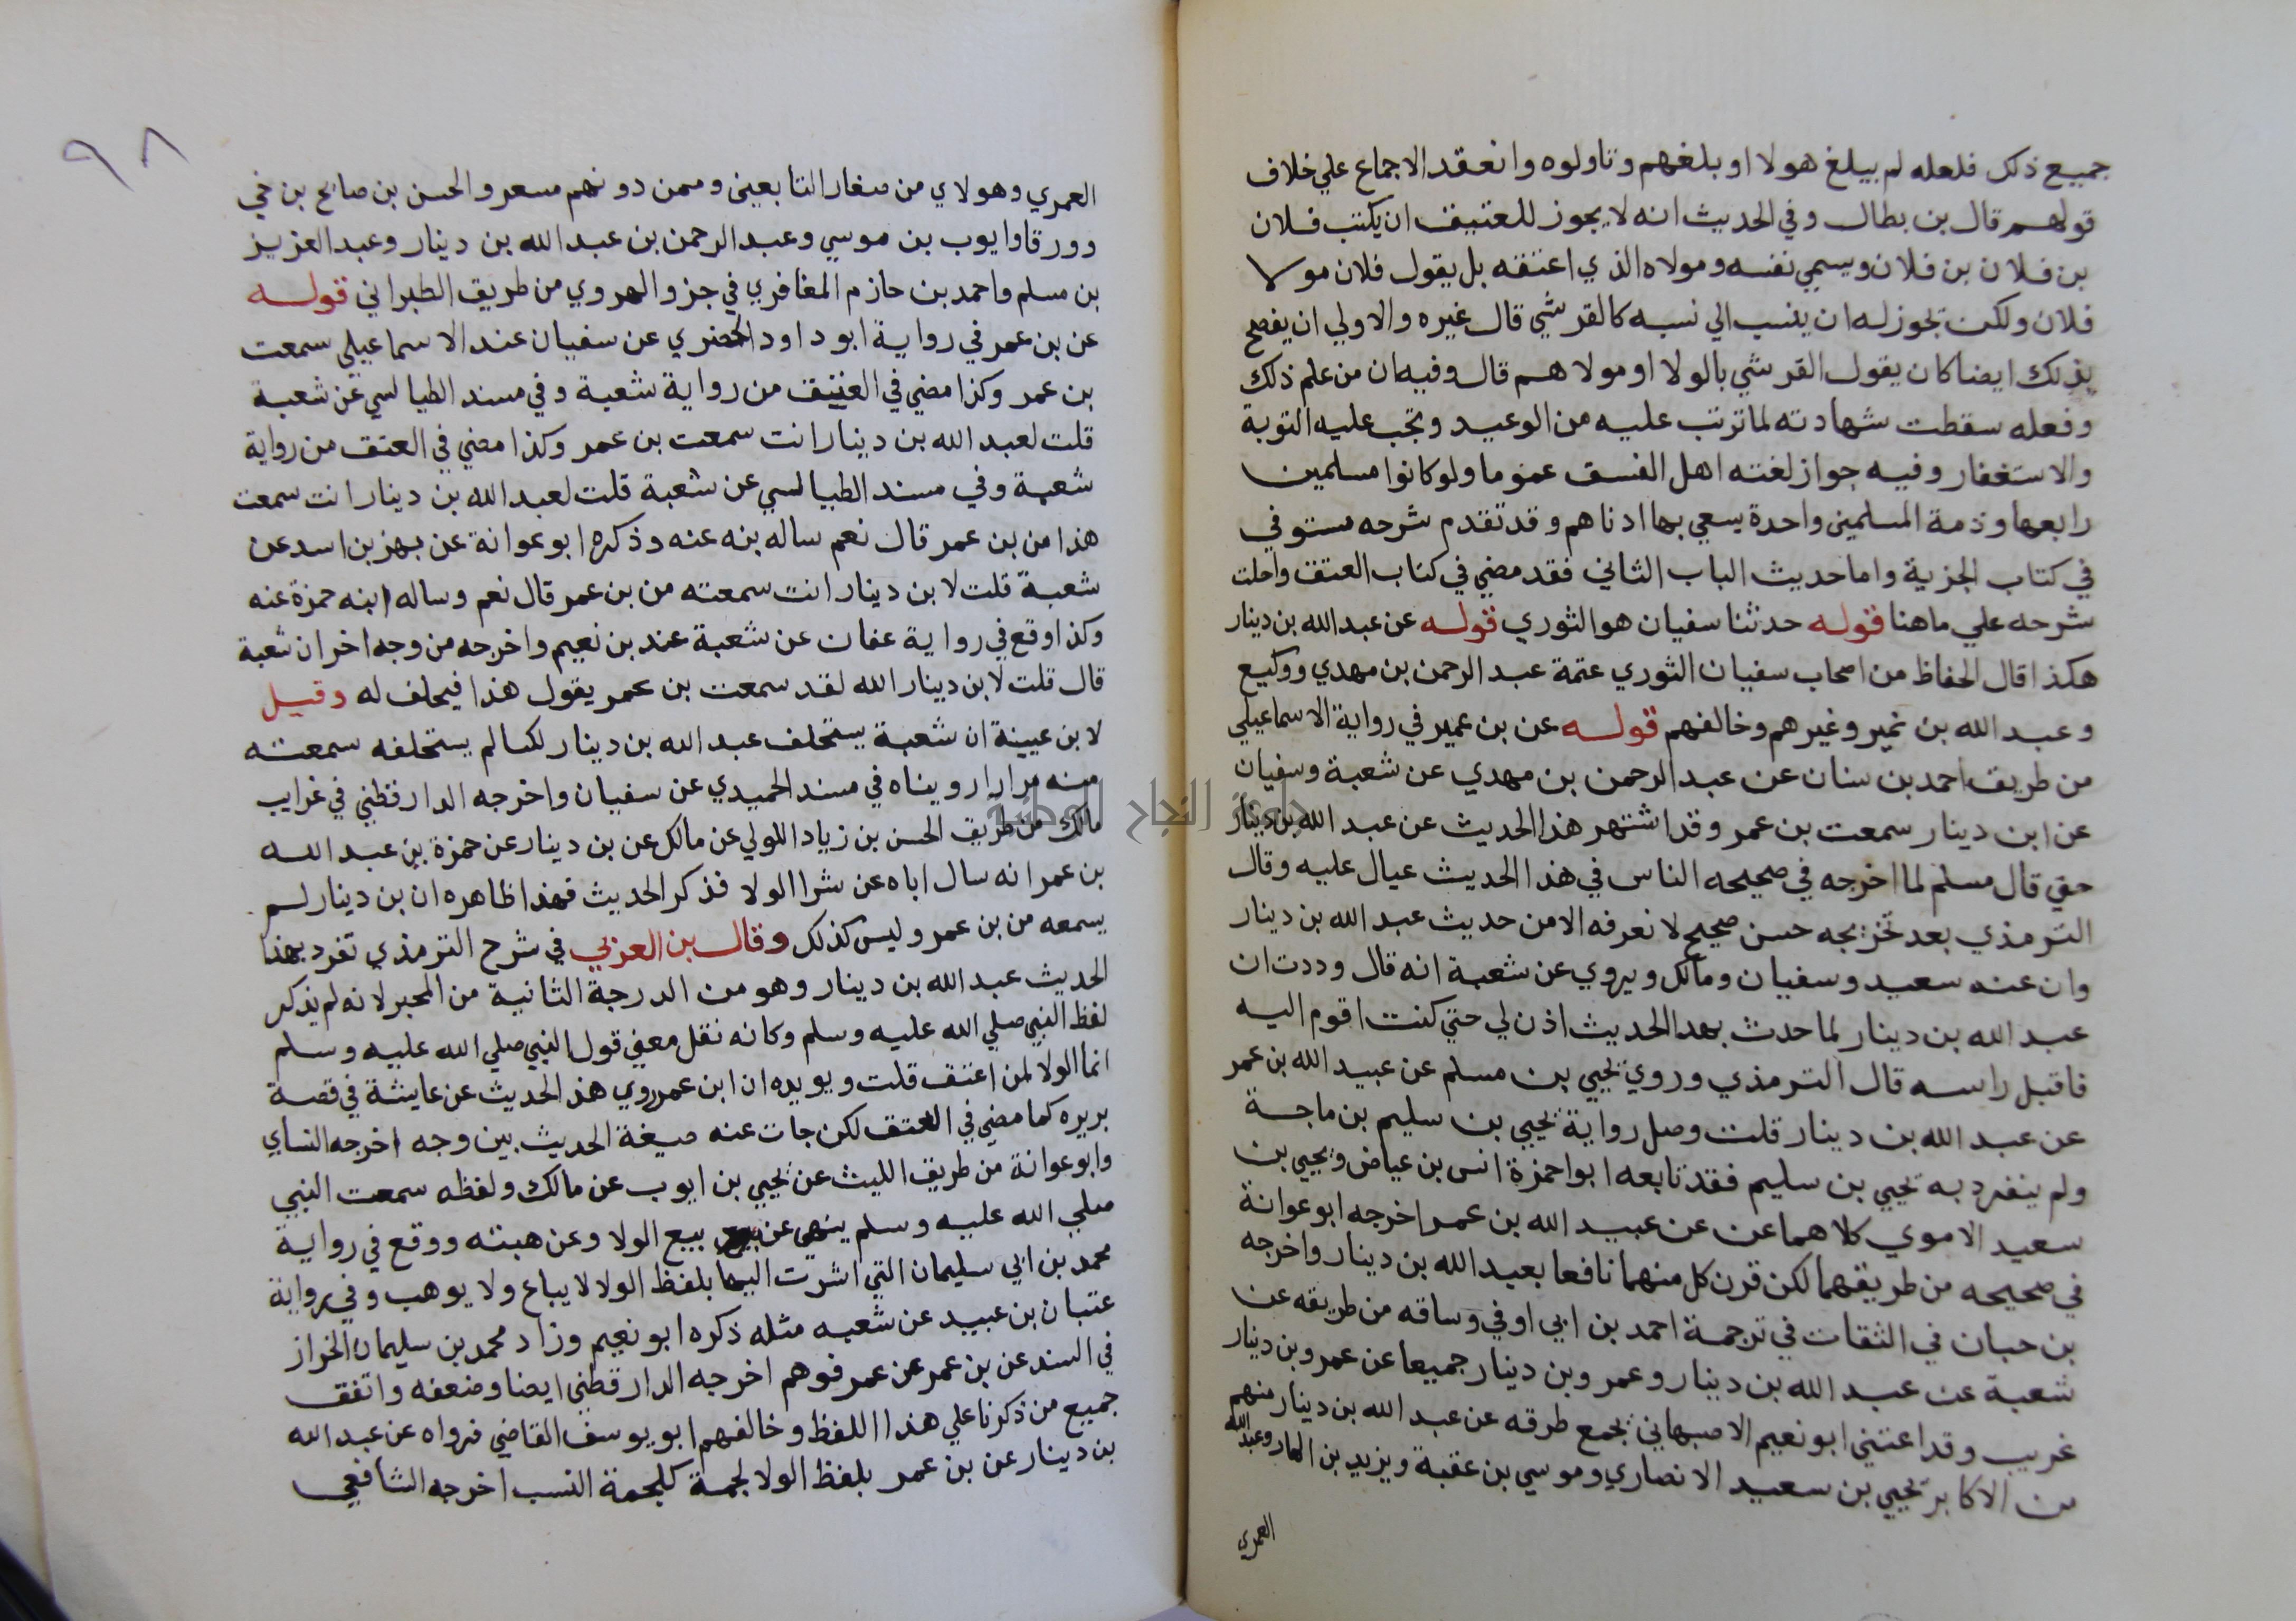 جميع ذلك فلعله لم يبلغ هولا او بلغهم وتاولوه وانعقد الاجماع علي خلاف
قولهم قال بن بطال وفي الحديث انه لا يجوز للعتيق ان يكتب فلان
بن فلان بن فلان ويسمي نفسه ومولاه الذي اعتقه بل يقول فلان مولا
فلان ولكن تجوز له ان ينسب الي نسبه كالقرشي قال غيره والاولي ان يفصح
بذلك ايضا كان يقول القرشي بالولا او مولاهم قال وفيه ان من علم ذلك
وفعله سقطت شهادته لما ترتب عليه من الوعيد وتجب عليه التوبة
والاستغفار وفيه جواز لغته اهل الفسق عموما ولو كانوا مسلمين
رابعها وذمة المسلمين واحدة يسعي بها ادناهم وقد تقدم شرحه مستوفي
في كتاب الجزية واما حديث الباب الثاني فقد مضي في كتاب العتق واحلت
شرحه علي ماهنا قوله حدثنا سفيان هو الثوري قوله عن عبد الله بن دينار
هكذا قال الحفاظ من اصحاب سفيان الثوري عتمة عبد الرحمن بن مهدي ووكيع
وعبد الله بن نمير وغيرهم وخالفهم قوله عن بن عمير في رواية الاسماعيلي
من طريق احمد بن سنان عن عبد الرحمن بن مهدي عن شعبة وسفيان
عن ابن دينار سمعت بن عمر وقد اشتهر هذا الحديث عن عبد الله بن دينار
حتي قال مسلم لما اخرجه في صحيحه الناس في هذا الحديث عيال عليه وقال
الترمذي بعد تخريجه حسن صحيح لا نعرفه الا من حديث عبد الله بن دينار
وان عنه سعيد وسفيان ومالك ويروي عن شعبة انه قال وددت ان
عبد الله بن دينار لما حدث بهدا الحديث اذن لي حتي كنت اقوم اليه
فاقبل راسه قال الترمذي وروي يحيي بن مسلم عن عبيد الله بن عمر
عن عبد الله بن دينار قلت وصل رواية يحيي بن سليم بن ماجة
ولم ينفرد به يحيي بن سليم فقد تابعه ابوا حمزة انس بن عياض ويحيي بن
سعيد الاموي كلاهما عن عن عبيد الله بن عمر اخرجه ابو عوانة
في صحيحه من طريقهما لكن قرن كل منهما نافعا بعبد الله بن دينار واخرجه
بن حبان في الثقات في ترجمة احمد بن ابي اوفي وساقه من طريقه عن
شعبة عن عبد الله بن دينار وعمر وبن دينار جميعا عن عمر وبن دينار
غريب وقد اعتني ابو نعيم الاصبهاني بجمع طرقه عن عبد الله بن دينار منهم
من الاكابر يحيي بن سعيد الانصاري وموسي بن عقبة ويزيد بن الهاد وعبد الله
العمري
٩٨
العمري وهولاي من صغار التابعين وممن دونهم مسعر والحسن بن صالح بن حي
وورقا وايوب بن موسي وعبد الرحمن بن عبد الله بن دينار وعبد العزيز
بن مسلم واحمد بن حازم المغافري في جزو الهروي من طريق الطبراني قوله
عن بن عمر في رواية ابو داود الحضري عن سفيان عند الاسماعيلي سمعت
بن عمر وكذا مضي في العتيق من رواية شعبة وفي مسند الطيالسي عن شعبة
قلت لعبد الله بن دينار انت سمعت بن عمر وكذا مضي في العتق من رواية
شعبة وفي مسند الطيالسي عن شعبة قلت لعبد الله بن دينار انت سمعت
هذا من بن عمر قال نعم ساله بنه عنه وذكره ابو عوانة عن بهز بن اسد عن
شعبة قلت لابن دينار انت سمعته من بن عمر قال نعم وساله ابنه حمزة عنه
وكذا وقع في رواية عفان عن شعبة عند بن نعيم واخرجه من وجه اخر ان شعبة
قال قلت لابن دينار الله لقد سمعت بن عمر يقول هذا فيحلف له وقيل
لابن عيينة ان شعبة يستحلف عبد الله بن دينار لكنا لم يستحلفه سمعته
منه مرارا رويناه في مسند الحميدي عن سفيان واخرجه الدارقطني في غرايب
مالك من طريق الحسن بن زياد اللولي عن مالك عن بن دينار عن حمزة بن عبد الله
بن عمر انه سال اباه عن شرا الولا فذكر الحديث فهذا ظاهره ان بن دينار لم
يسمعه من بن عمر وليس كذلك وقال بن العربي في شرح الترمذي تفرد بهذا
الحديث عبد الله بن دينار وهو من الدرجة الثانية من المخبر لانه لم يذكر
لفظ النبي صلي الله عليه وسلم وكانه نقل معني قول النبي صلي الله عليه وسلم
انما الولا لمن اعتق قلت ويويده ان ابن عمر روي هذ الحديث عن عايشة في قصة
بريره كما مضي في العتق لكن جات عنه صيغة الحديث بين وجه اخرجه النساي
وابو عوانة من طريق الليث عن يحيي بن ايوب عن مالك ولفظه سمعت النبي
صلي الله عليه وسلم ينهي عن بيع الولا وعن هبته ووقع في رواية
محمد بن ابي سليمان التي اشرت اليها بلفظ الولا لا يباع ولا يوهب وفي رواية
عتبان بن عبيد عن شعبه مثله ذكره ابو نعيم وزاد محمد بن سليمان الخزاز
في السند عن بن عمر عن عمر فوهم اخرجه الدارقطني ايضا وضعفه واتفق
جميع من ذكرنا علي هذا اللفظ وخالفهم ابو يوسف القاضي فرواه عن عبد الله
بن دينار عن بن عمر بلفظ الولا لحمة كلحمة النسب اخرجه الشافعي
جامعة النجاح الوطنية